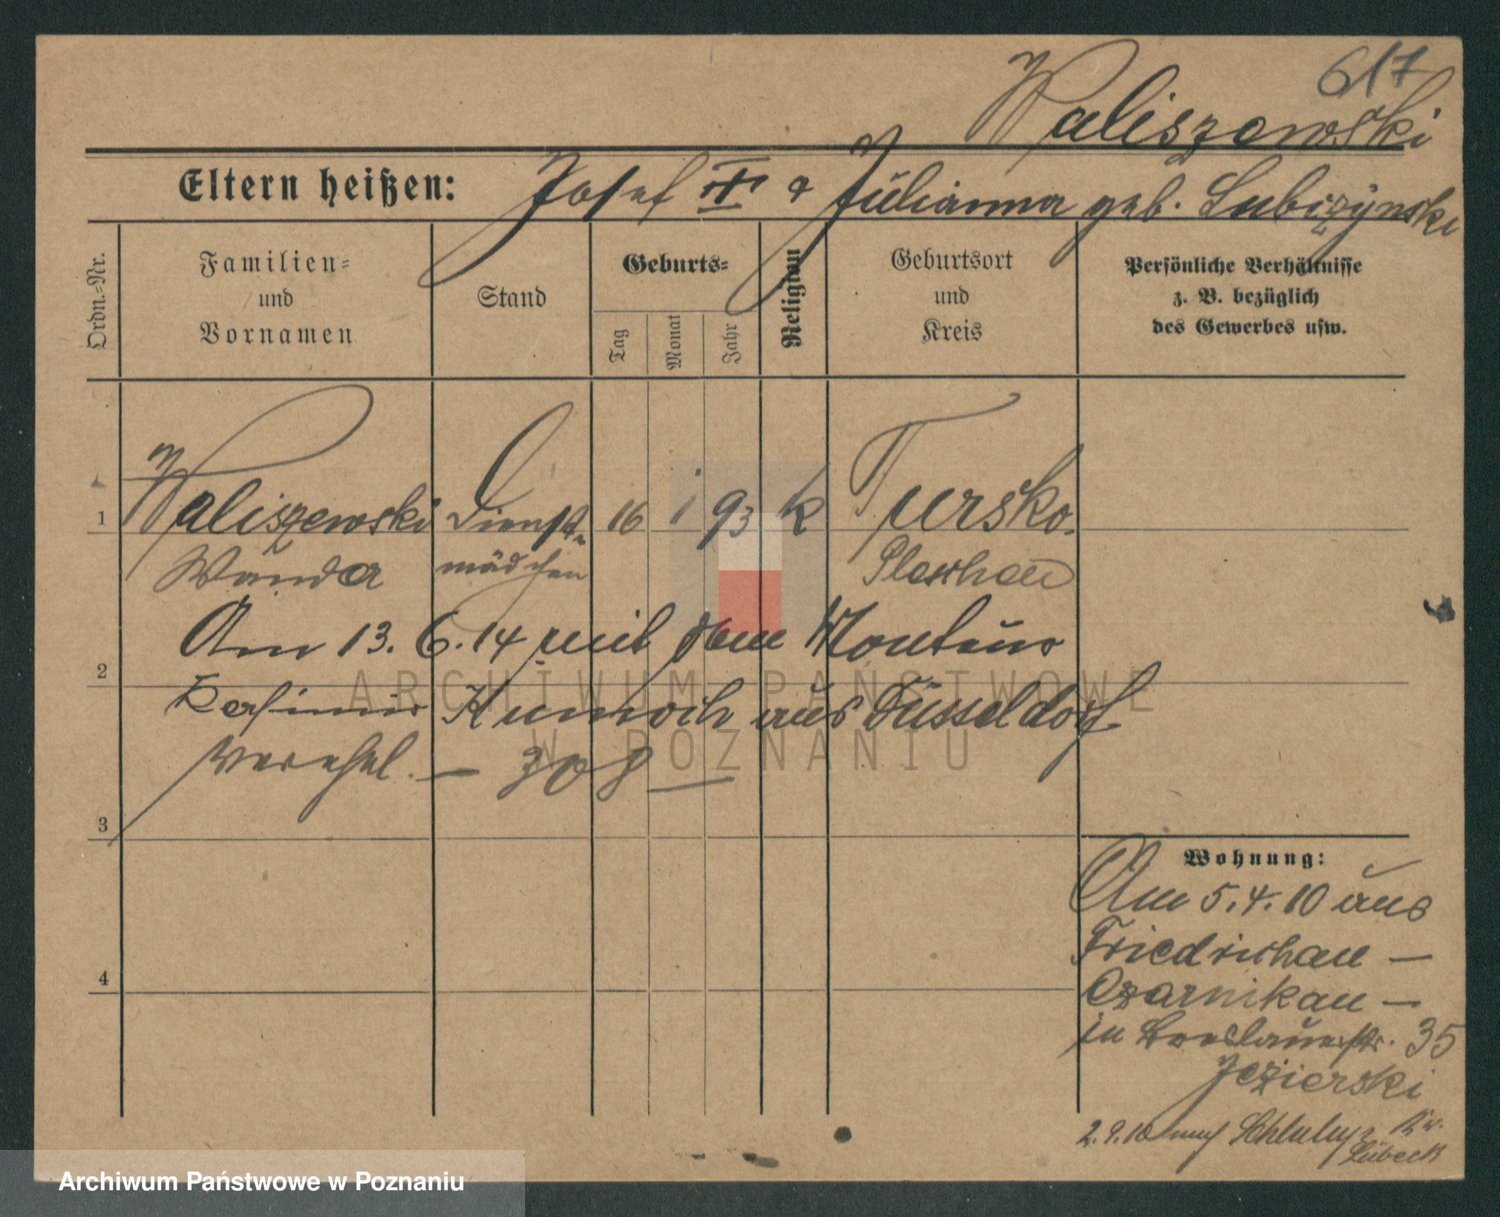 617
Waliszewski
Eltern heißen: Josef III & Julianna geb. Lubiczynski
Ordn.-Nr.
Familien- und Vornamen
Stand
Geburts-
Tag
Monat
Jahr
Religion
Geburtsort und Kreis
Persönliche Verhältnisse z. B. bezüglich des Gewerbes usw.
1 Waliszewski Dienst- 16 1 93 k Tursko.
Wanda mädchen Pleschau
Am 13. 6. 14 mit dem Monteur
2
Kasimir aus Düsseldorf
verehel. — 308 —
3
Wohnung:
Am 5. 4. 10 aus
Friedrichau —
Czarnikau —
4
in Breslauerstr. 35
Jezierski
2. 9. 10 nach Kr.
Lübeck
ARCHIWUM PAŃSTWOWE
W POZNANIU
Archiwum Państwowe w Poznaniu